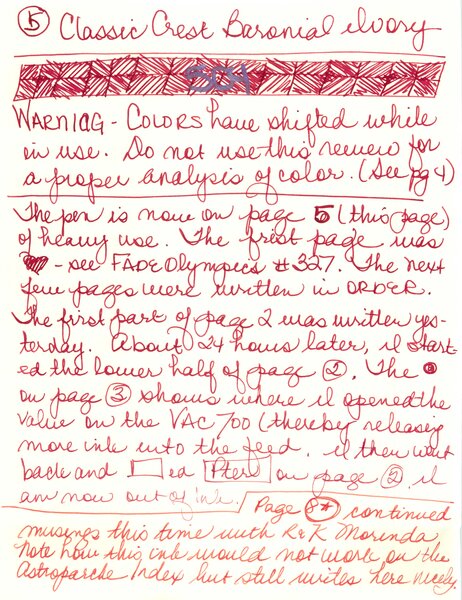 5 Classic Crest Baronial Ivory
501
WARNING - COLORS have shifted while
in use. Do not use this review for
a proper analysis of color. (See pg 4)
The pen is now on page 5 (this page)
of heavy use. The first page was
- see FADE Olympics #327. The next
few pages were written in ORDER.
The first part of page 2 was written yes-
terday. About 24 hours later, I start-
ed the lower half of page 2. The
on page 3 shows where I opened the
valve on the VAC 700 (thereby releasing
more ink into the feed. I then went
back and ed Pterd on page 2. I
am now out of ink.
Page 8* continued
musings this time with R&K Morinda
Note how this ink would not work on the
Astroparche Index but still writes here nicely.